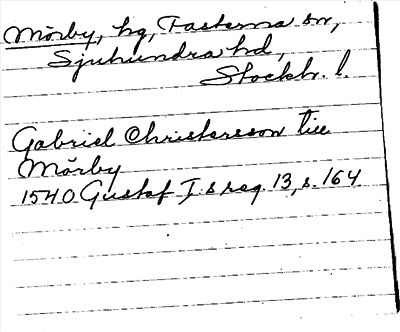 Mörby, hg, Fasterna sn,
Sjuhundra hd,
Stockh. l.
Gabriel Christersson till
Mörby
1540 Gustaf I:s reg. 13, s. 164